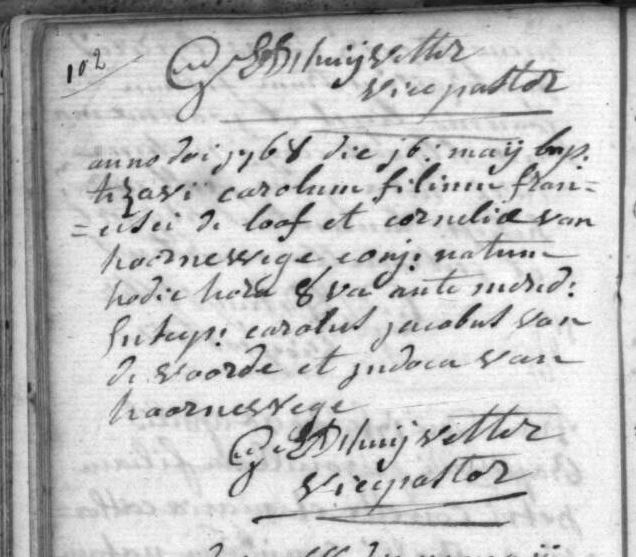 102
D'huijvetter
vicepastor
anno doi 1768 die 16: maij bap=
tizavi carolum filium fran=
=cisci de loof et corneliæ van
hoornewege conj: natum
hodie hora 8va ante merid:
Suscep: carolus jacobus van
de voorde et judoca van
hoornewege
D'huijvetter
vicepastor